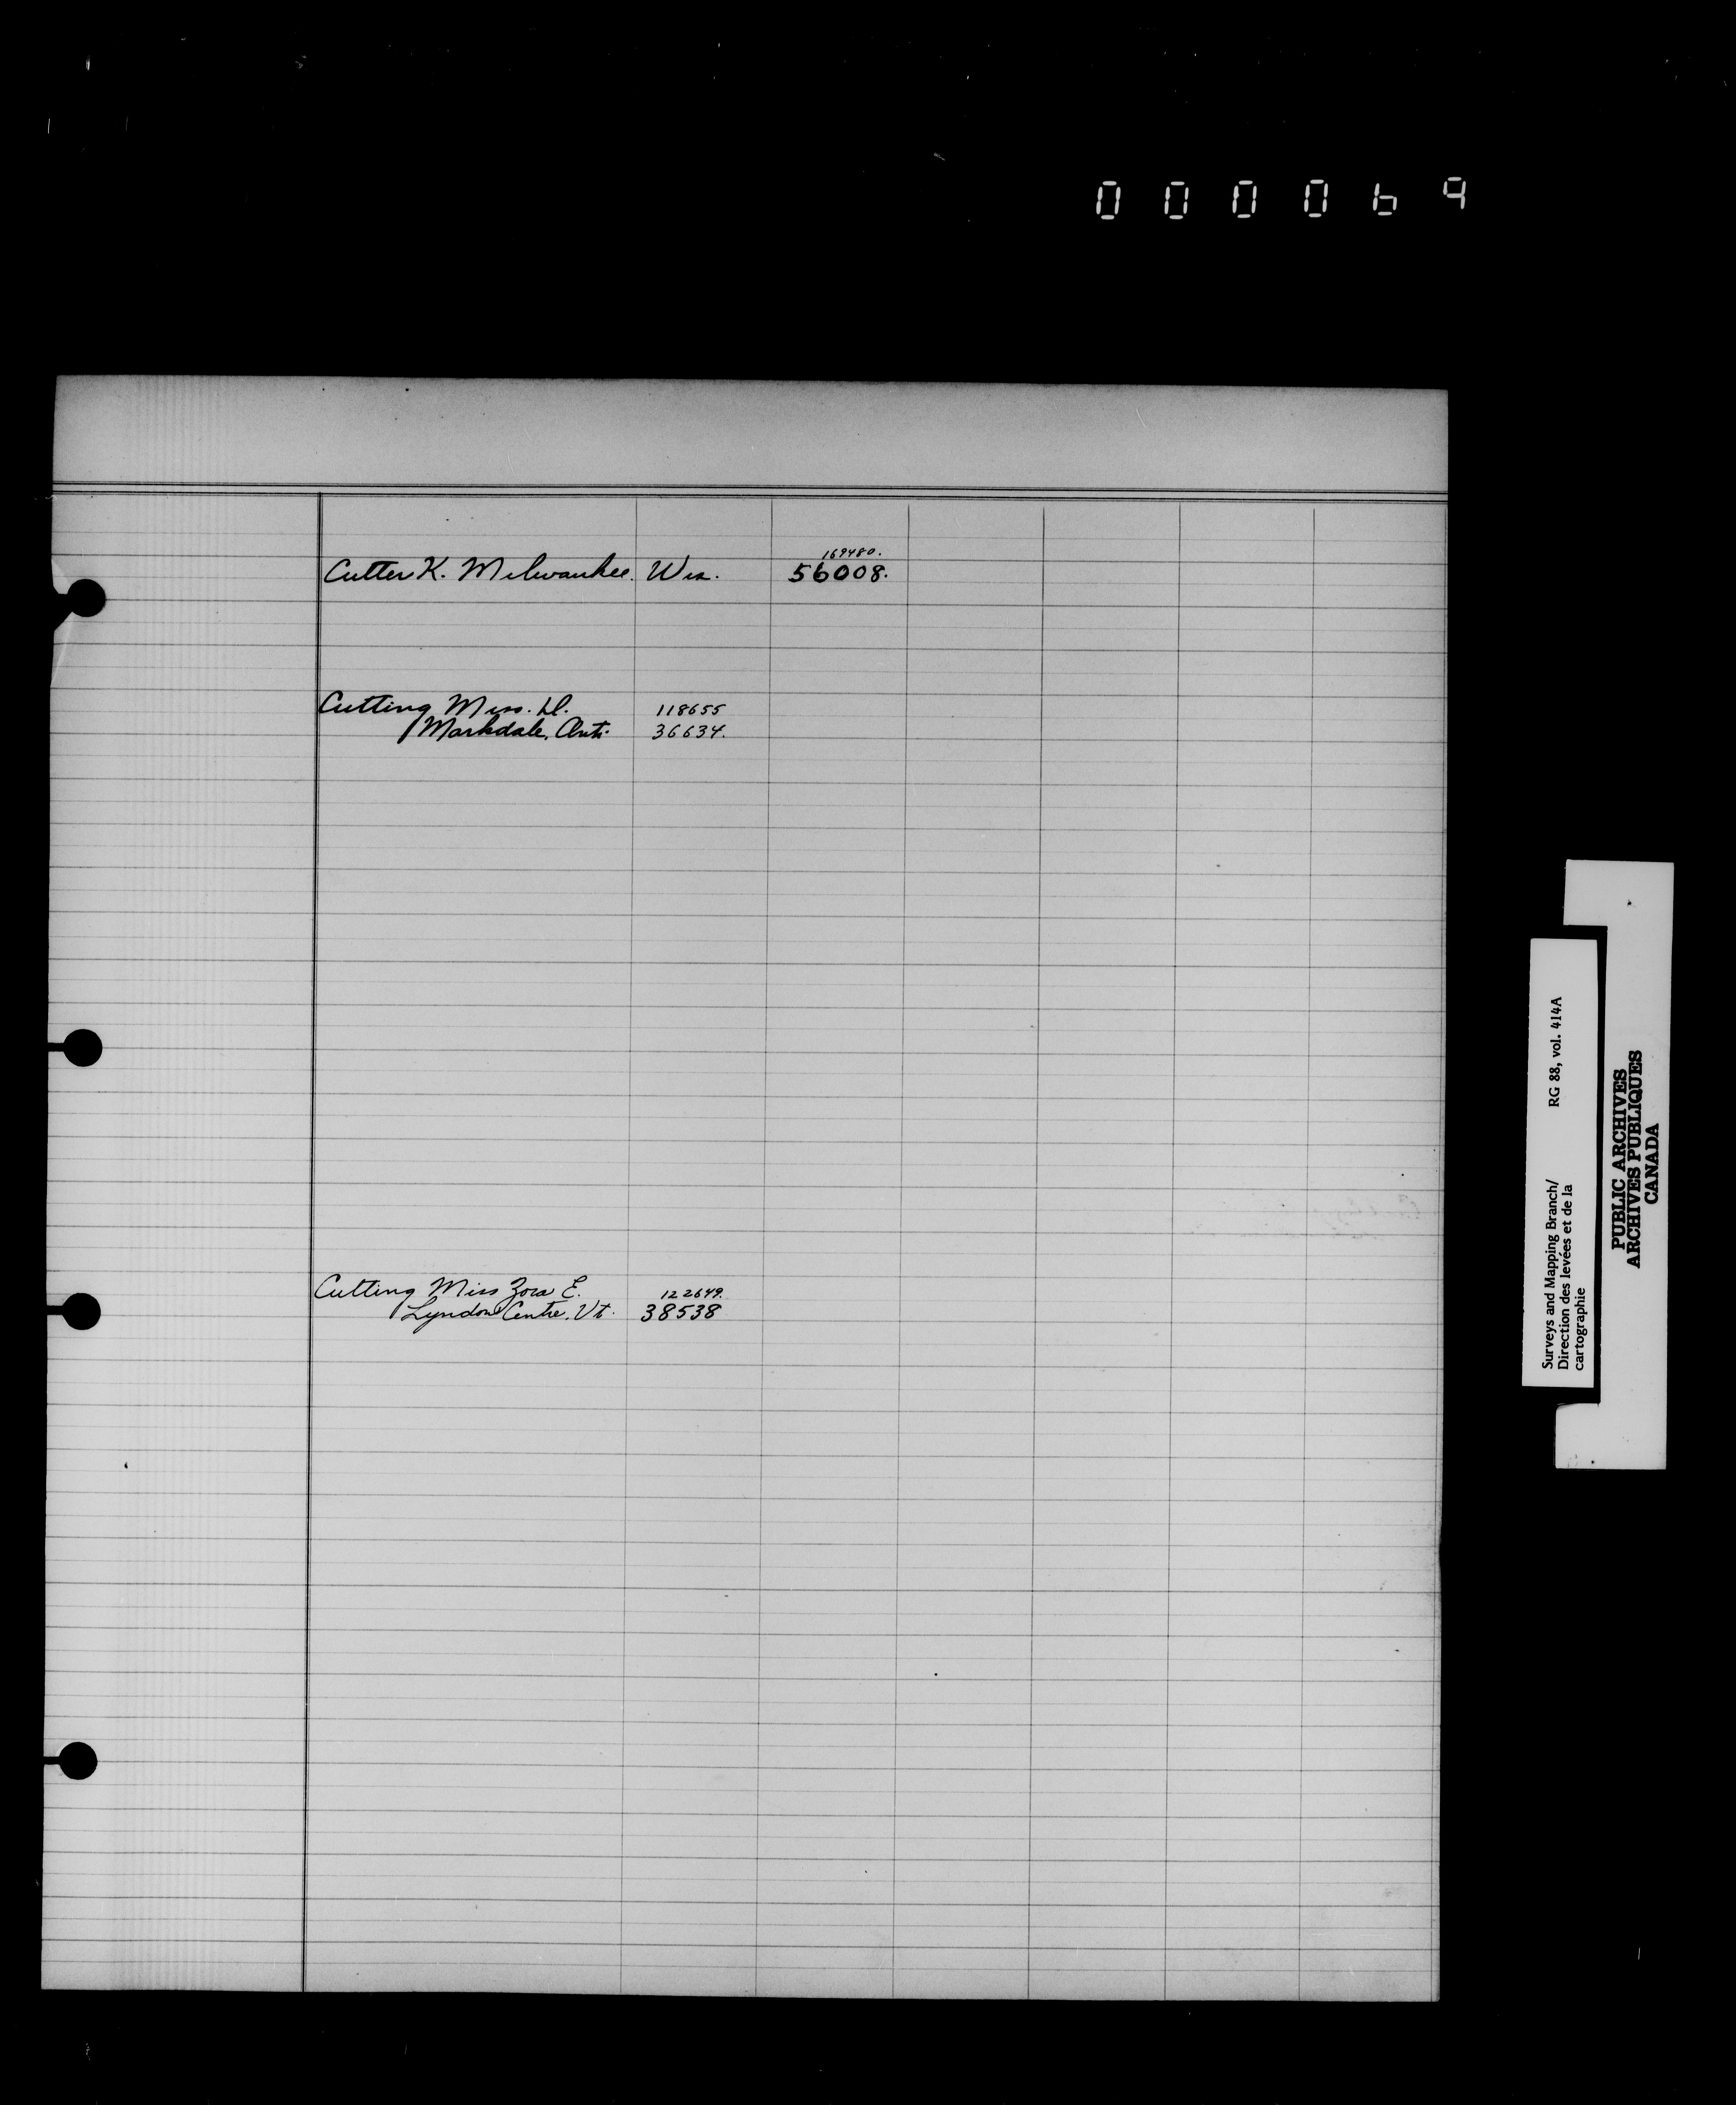 000069
169480.
Cutter K. Milwaukee. Wis. 56008.
Cutting Miss. H. 118655
Markdale, Ont. 36634.
Cutting Miss Zora E. 122649.
Lyndon Centre, Vt. 38538
Surveys and Mapping Branch/ RG 88, vol. 414A
Direction des levées et de la
cartographie
PUBLIC ARCHIVES
ARCHIVES PUBLIQUES
CANADA